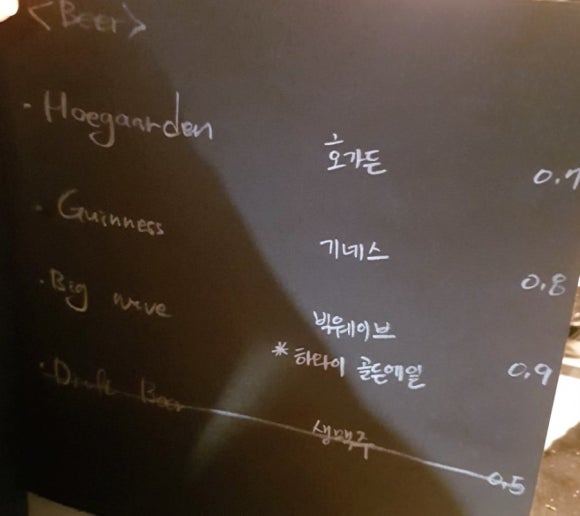 <Beer>
· Hoegaarden 호가든 0.7
· Guinness 기네스 0.8
· Big wave 빅웨이브
* 하와이 골든에일 0.9
· Draft Beer 생맥주 0.5